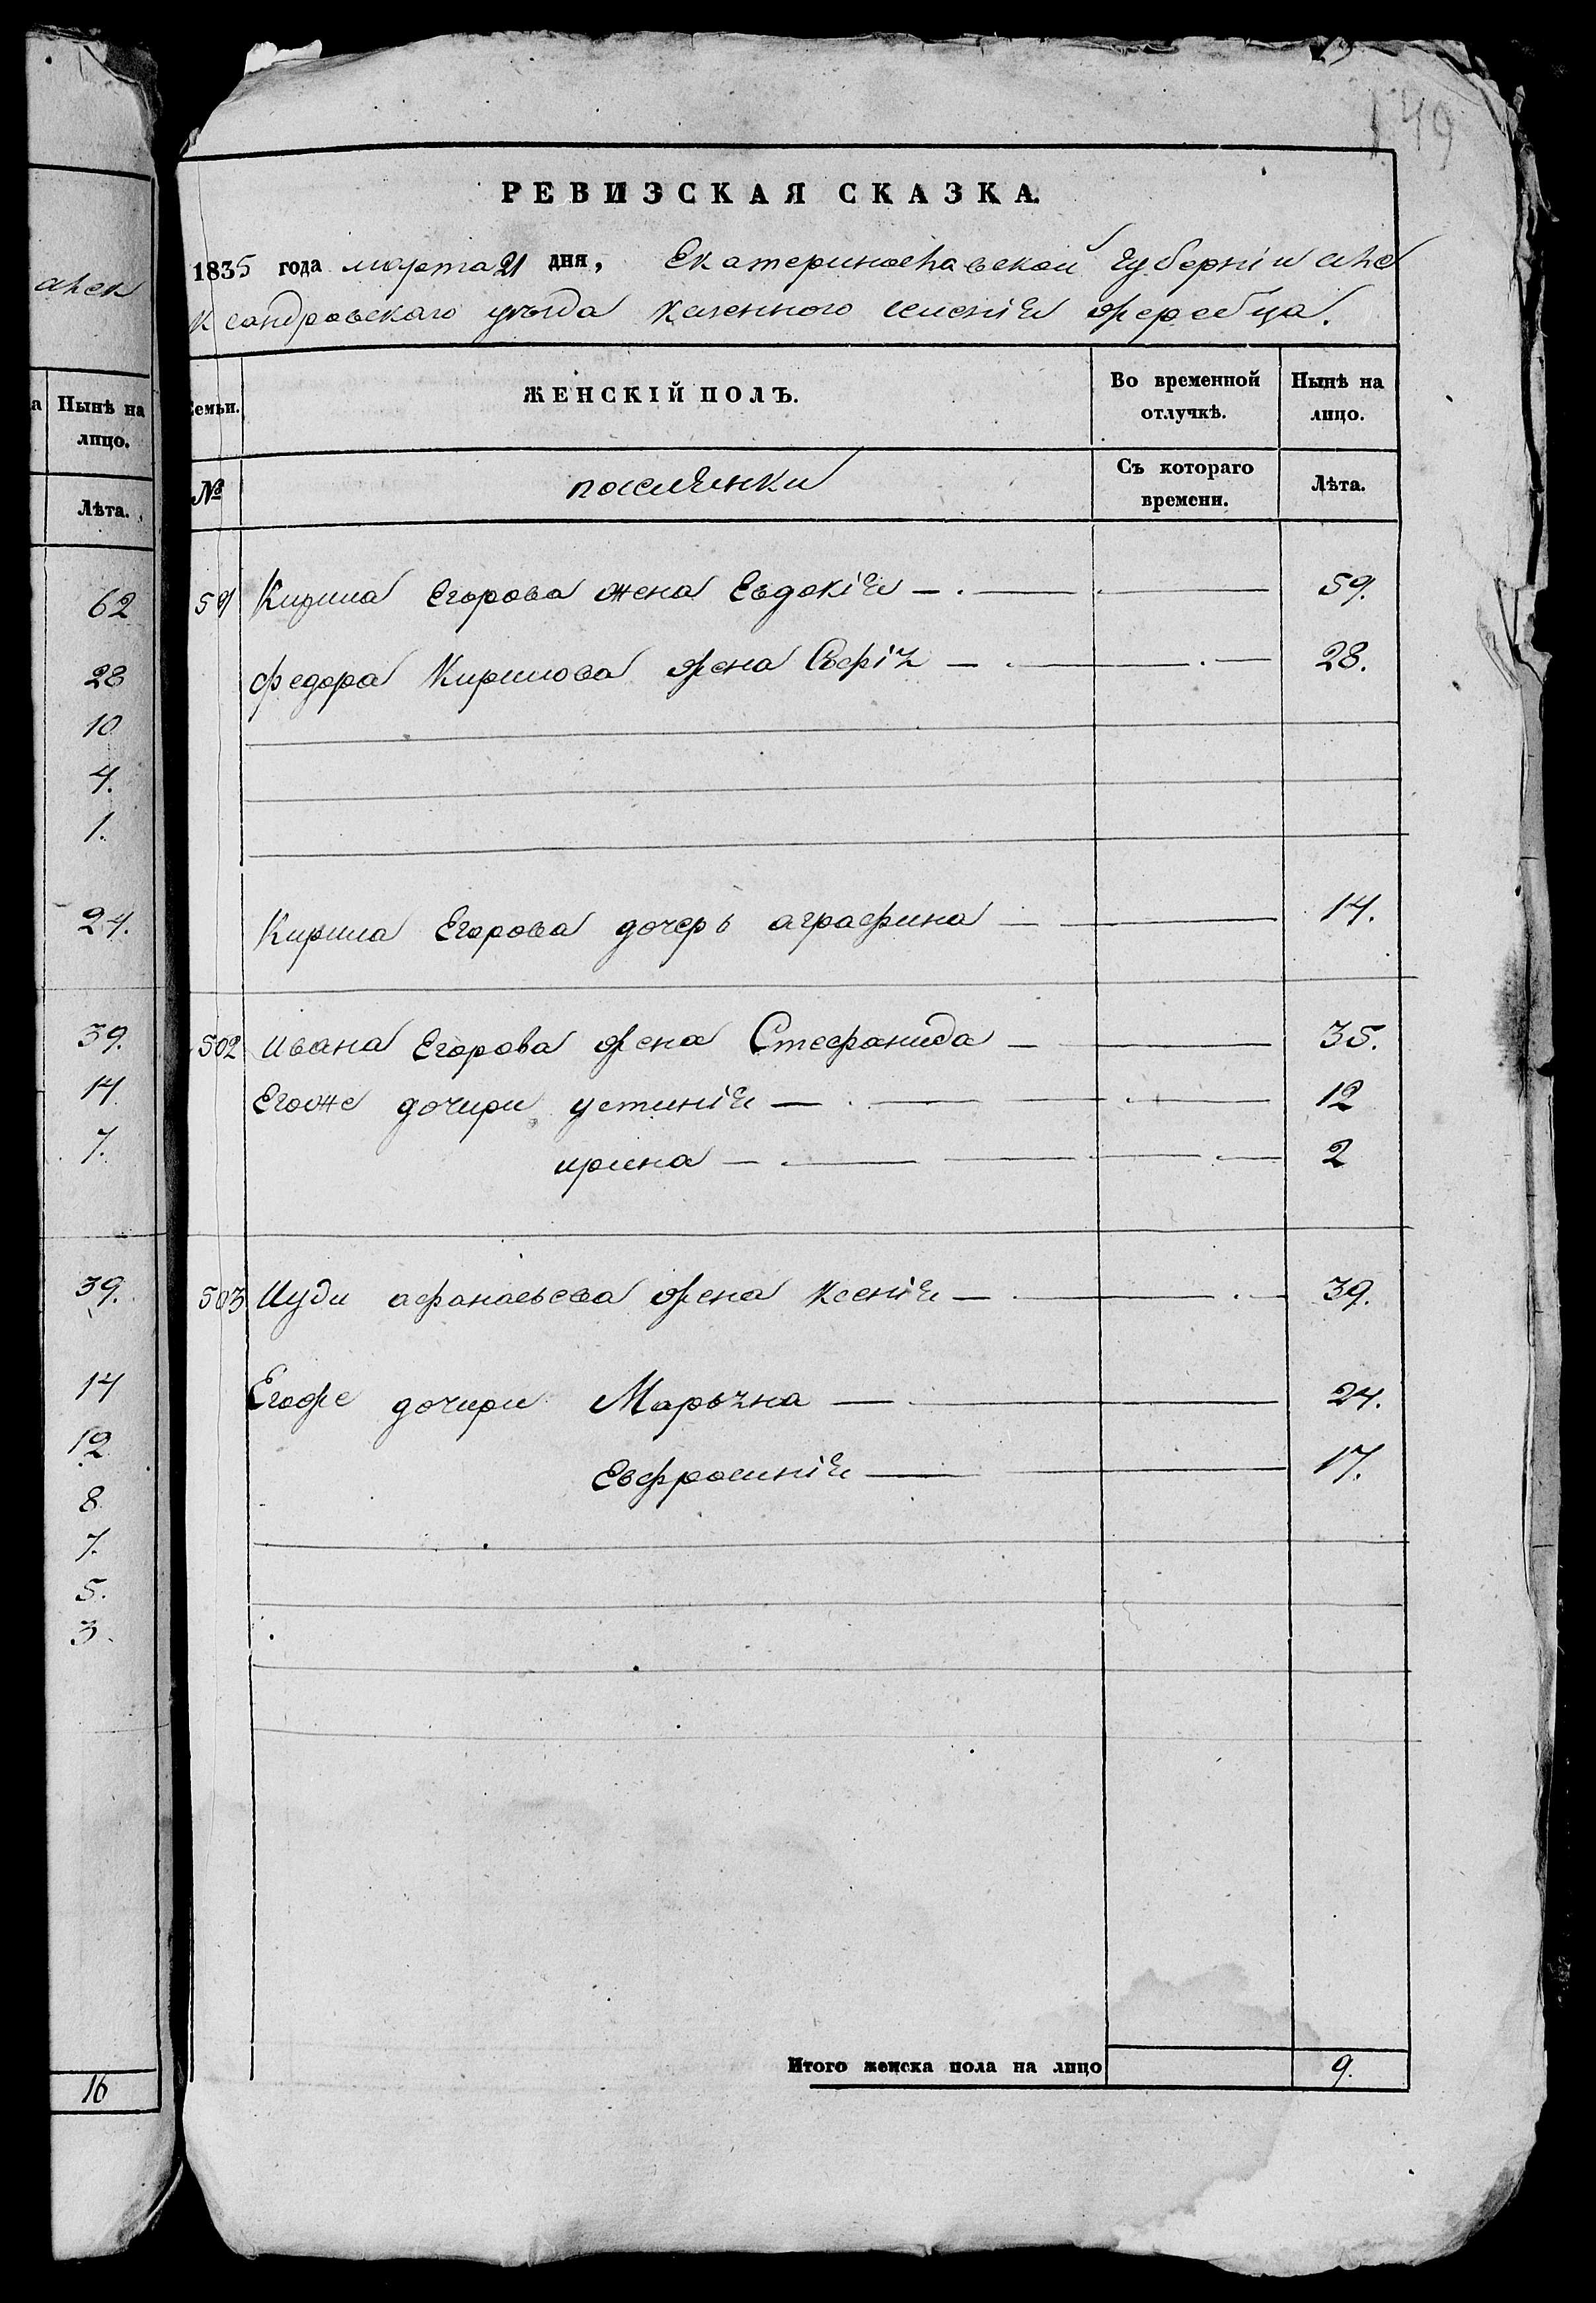 149
РЕВИЗСКАЯ СКАЗКА.
1835 года марта 21 дня, Екатеринославской губерніи але
ксандровскаго уѣзда казенного селенія жеребца.
алек
Семьи. ЖЕНСКІЙ ПОЛЪ. Во временной отлучкѣ. Нынѣ на лицо.
№ поселянки Съ котораго времени. Лѣта.
а Нынѣ на
лицо.
Лѣта.
62
28
10
4.
1.
24.
39.
14
7.
39.
14
12
8
7.
5.
3.
16
Кирила Егорова жена Евдокія 59.
федора Кирилова жена 28.
Кирила Егорова дочерь аграфина 14.
502 ивана Егорова жена Стефанида 35.
Егоже дочири устинія 12
ирина 2
503 Иуди афанасьева жена ксенія 39.
Егоже дочири Марьяна 24.
Евфросинія 17.
Итого женска пола на лицо 9.